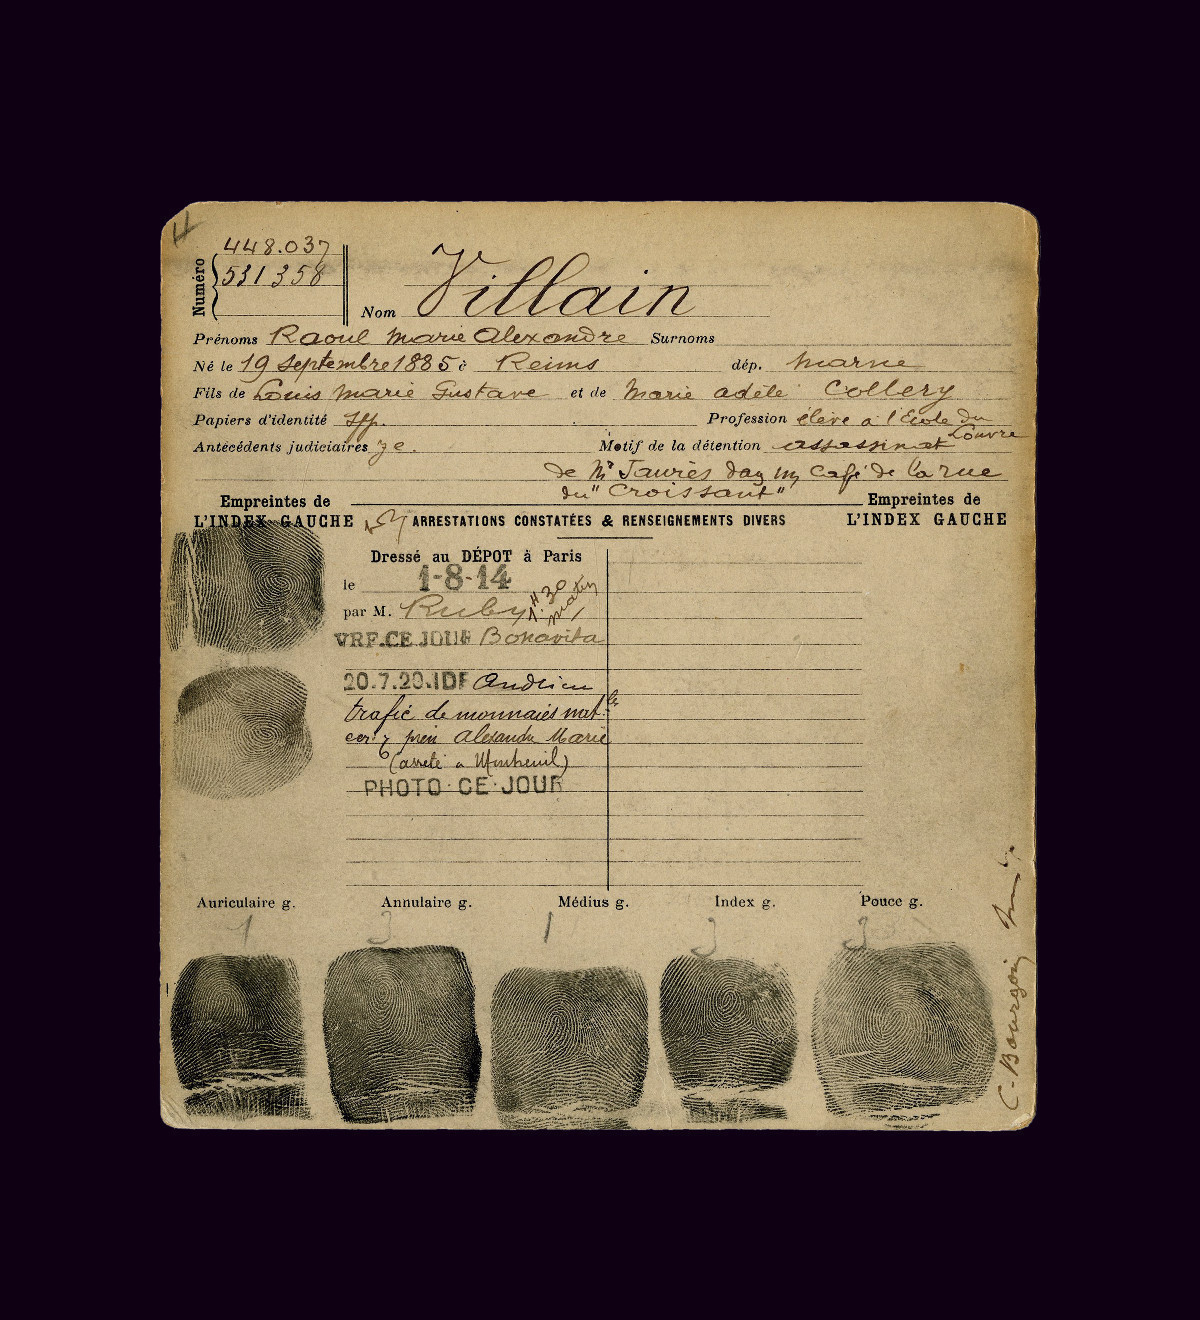 448.037
Numéro
531358
Nom Villain
Prénoms Raoul Marie Alexandre Surnoms
Né le 19 Septembre 1885 à Reims dép. Marne
Fils de Louis Marie Gustave et de Marie adèle Collery
Papiers d'identité Profession élève à l'Ecole du
Louvre
Antécédents judiciaires Motif de la détention assassinat
de Mr Jaurès café de la rue
du "Croissant"
Empreintes de
L'INDEX GAUCHE
ARRESTATIONS CONSTATÉES & RENSEIGNEMENTS DIVERS
Empreintes de
L'INDEX GAUCHE
Dressé au DÉPOT à Paris
le 1-8-14
par M. Ruby 1H.30 matin
VRF.CE JOUR Bonavita
20.7.20.IDF Andrieu
trafic de monnaies nat.les
Alexandre Marie
(arrêté à Montreuil)
PHOTO CE JOUR
Auriculaire g. Annulaire g. Médius g. Index g. Pouce g.
1 3 1 3 3
C. Bourgoin